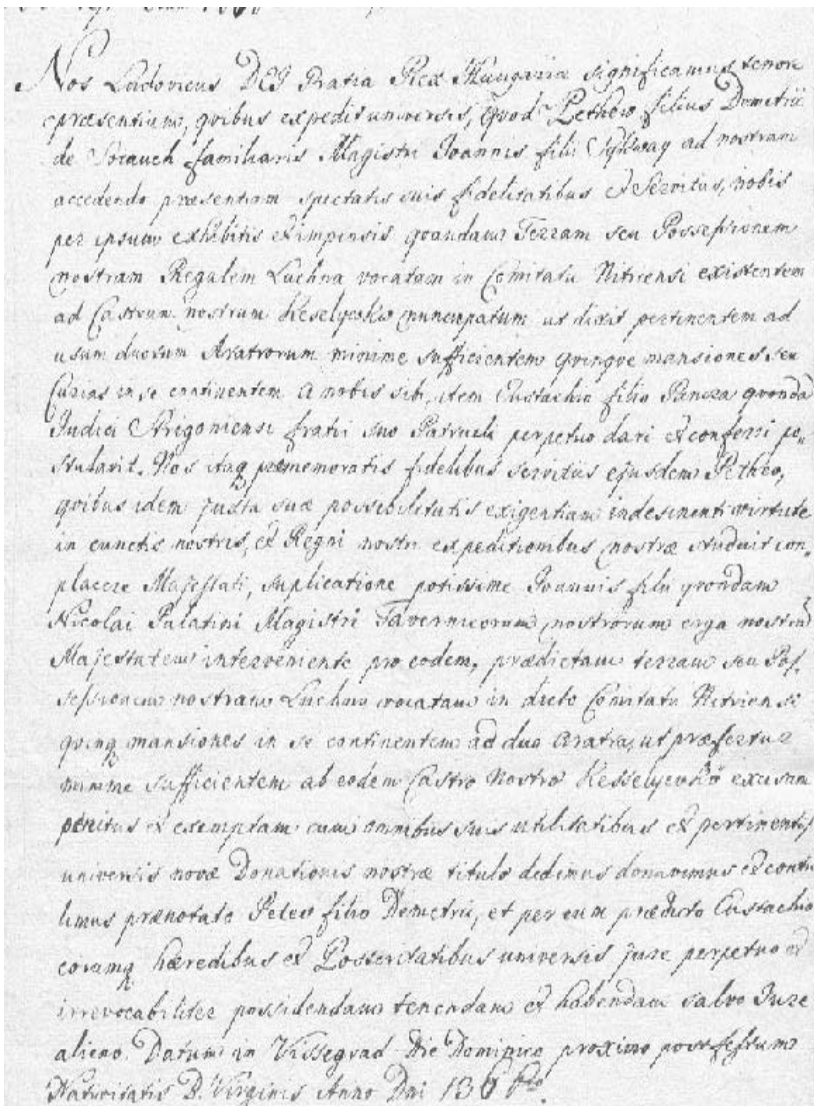 Nos Ludovicus DEI Gratia Rex Hungariæ significamus tenore
præsentium, qvibus expedit universis, qvod Petheo filius Demetrii
de familiaris Magistri Joannis filii ad nostram
accedendo præsentiam spectatis suis fidelitatibus et Servitiis, nobis
per ipsum exhibitis et impensis qvandam Terram seu Possessionem
nostram Regalem Luchna vocatam in Comitatu Nitriensi existentem
ad Castrum nostrum Keselyewkw nuncupatum ut dixit pertinentem ad
usum duorum Aratrorum minime sufficientem qvinqve mansiones seu
Curias in se continentem a nobis sibi, item Eustachio filio Pancza qvonda
Judici Strigoniensi fratri suo Patrueli perpetuo dari et conferri po„
stulavit. Nos itaq præmemoratis fidelibus servitiis ejusdem Petheo,
qvibus idem juxta suæ possibilitatis exigentiam indesinenti virtute
in cunctis nostris, et Regni nostri expeditionibus nostræ studuit con„
placere Majestati, suplicatione potissime Joannis filii qvondam
Nicolai Palatini Magistri Tavernicorum nostrorum erga nostra
Majestatem interveniente pro eodem, prædictam terram seu Pos„
sessionem nostram Luchna vocatam in dicto Comitatu Nitriensi
qvinq mansiones in se continentem ad duo aratra, ut præfertur
minime sufficientem ab eodem Castro Nostro Kesselyewkö excisam
penitus et exemptam cum omnibus suis utilitatibus et pertinentiis
universis novæ Donationis nostræ titulo dedimus donavimus et contu
limus prænotato Peteo filio Demetrii, et per eum prædicto Eustachio
eorumq hæredibus et Posteritatibus universis jure perpetuo et
irrevocabiliter possidendam tenendam et habendam salvo Jure
alieno. Datum in Vissegrad Die Dominico proximo post festum
Nativitatis B. Virginis Anno Dni